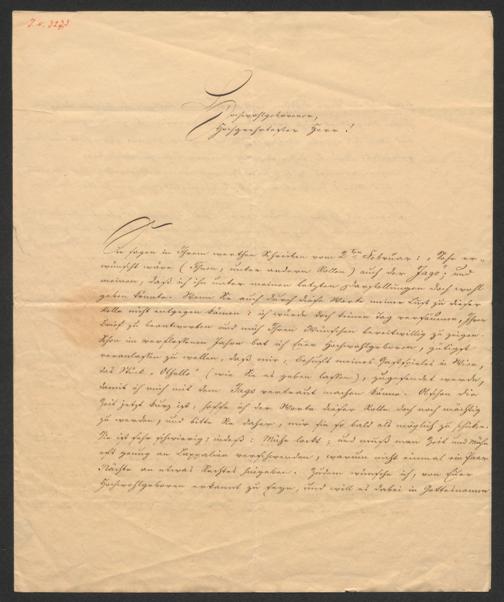 J. N. 3233
Hochwohlgeborener,
Hochgeehrtester Herr!
Sie sagen in Ihrem werthen Schreiben vom 2ten Februar: „Sehr er-
wünscht wäre (Ihnen, unter andern Rollen) auch der Jago; und
meinen, daß ich ihn unter meinen letzten Darstellungen doch wohl
geben könnte. Wenn Sie auch durch diese Worte meiner Lust zu dieser
Rolle nicht entgegen kämen: ich würde doch keinen Tag versäumen, Ihren
Brief zu beantworten und mich Ihren Wünschen bereitwillig zu zeigen.
Schon in verflossenen Jahren bat ich Euer Hochwohlgeboren, gütigst
veranlassen zu wollen, daß mir, behufs meines Gastspieles in Wien,
das Stück „Othello" (wie Sie es geben lassen), zugesendet werde,
damit ich mich mit dem Jago vertraut machen könne. Obschon die
Zeit jetzt kurz ist, hoffe ich der Worte dieser Rolle doch noch mächtig
zu werden, und bitte Sie daher, mir sie so bald als möglich zu schicken.
Sie ist sehr schwierig; indeß: Mühe lockt; und muß man Zeit und Mühe
oft genug an Lappalien verschwenden, warum nicht einmal ein Paar
Nächte an etwas Rechtes hingeben. Zudem wünsche ich, von Euer
Hochwohlgeboren erkannt zu seyn, und will es dabei in Gottesnamen